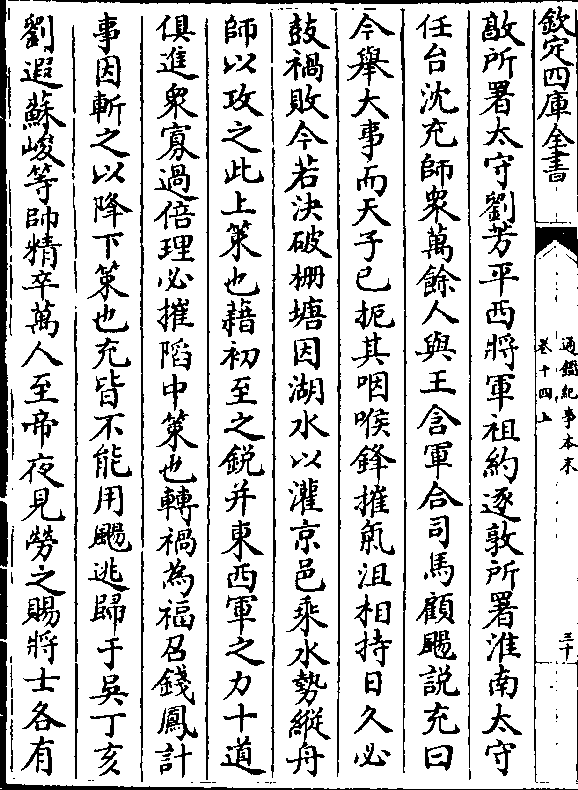 欽定四庫全書
通鑑紀事本末
卷十四上
三十
敵所署太守劉芳平西將軍祖約逐敦所署淮南太守
任台沈充師衆萬餘人與王含軍合司馬顧颺説充曰
今舉大事而天子已扼其咽喉鋒摧氣沮相持日久必
鼓禍敗今若決破柵塘因湖水以灌京邑乘水勢縱舟
師以攻之此上策也藉初至之鋭并東西軍之力十道
俱進衆寡過倍理必摧陷中策也轉禍為福召錢鳳計
事因斬之以降下策也充皆不能用颺逃歸于吳丁亥
劉遐蘇峻等帥精卒萬人至帝夜見勞之賜將士各有